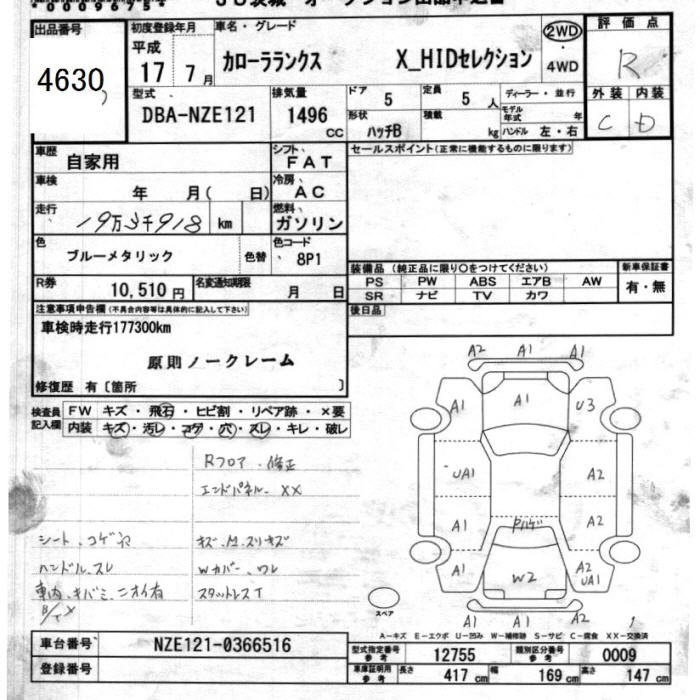 出品番号
4630
初度登録年月
平成
17 7月
車名・グレード
カローラランクス X_HIDセレクション
2WD
4WD
評価点
R
外装 内装
C D
型式
DBA-NZE121
排気量
1496 CC
ドア 5
定員 5 人
形状 ハッチB
積載 kg
ディーラー・並行
モデル年式 年
ハンドル 左・右
車歴 自家用
シフト FAT
セールスポイント(正常に機能するものに限ります)
車検 年 月( 日)
冷房 AC
走行 km
燃料 ガソリン
色 ブルーメタリック
色替
色コード 8P1
R券 10,510 円
名変通知期限 月 日
装備品 (純正品に限り○をつけてください)
PS PW ABS エアB AW
SR ナビ TV カワ
新車保証書
有・無
後日品
注意事項申告欄(不具合内容等は具体的に記入して下さい)
車検時走行177300km
原則ノークレーム
修復歴 有〔箇所 〕
検査員記入欄
FW キズ・飛石・ヒビ割・リペア跡・×要
内装 キズ・汚レ・コゲ・穴・スレ・キレ・破レ
Rフロア・修正
エンドパネル XX
シート、コゲ穴
ハンドル、スレ
車内、キバミ、ニオイ有
Wカバー、ワレ
スタットレスT
A2 A1 A1
A1 A1 U3
UA1 A2
A1 A2
A1 W2 A2
UA1
A1 A1 A2
スペア
A－キズ E－エクボ U－凹み W－補修跡 S－サビ C－腐食 XX－交換済
車台番号 NZE121-0366516
登録番号
型式指定番号 参考 12755
類別区分番号 参考 0009
車庫証明用 参考 長さ 417 cm 幅 169 cm 高さ 147 cm